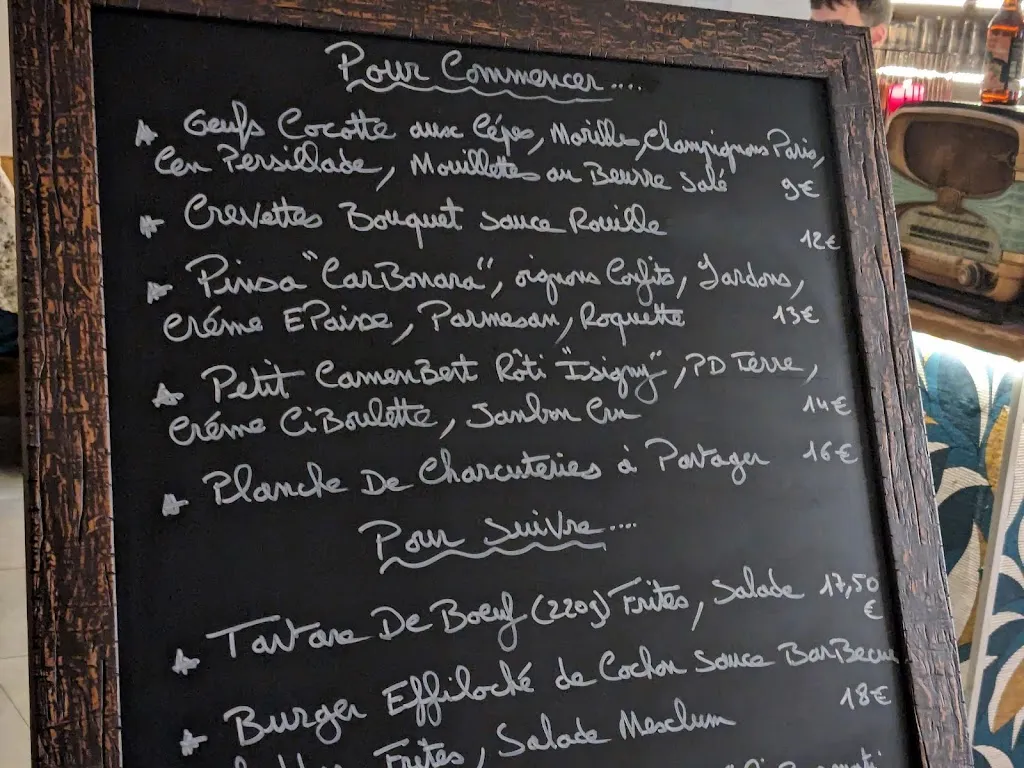 Pour Commencer....
Oeufs Cocotte aux Cépes, Morilles, Champignons Paris,
en Persillade, Mouillettes au Beurre Salé 9€
Crevettes Bouquet Sauce Rouille
12€
Pinsa "CarBonara", oignons Confits, Lardons,
Créme EPaisse, Parmesan, Roquette 13€
Petit CamenBert Rôti "Isigny", PD Terre,
Créme CiBoulette, Jambon Cru 14€
Planche De Charcuteries à Partager 16€
Pour Suivre....
Tartare De Boeuf (220g) Frites, Salade 17,50
€
Burger Effiloché de Cochon Sauce BarBecue
Frites, Salade Mesclum 18€